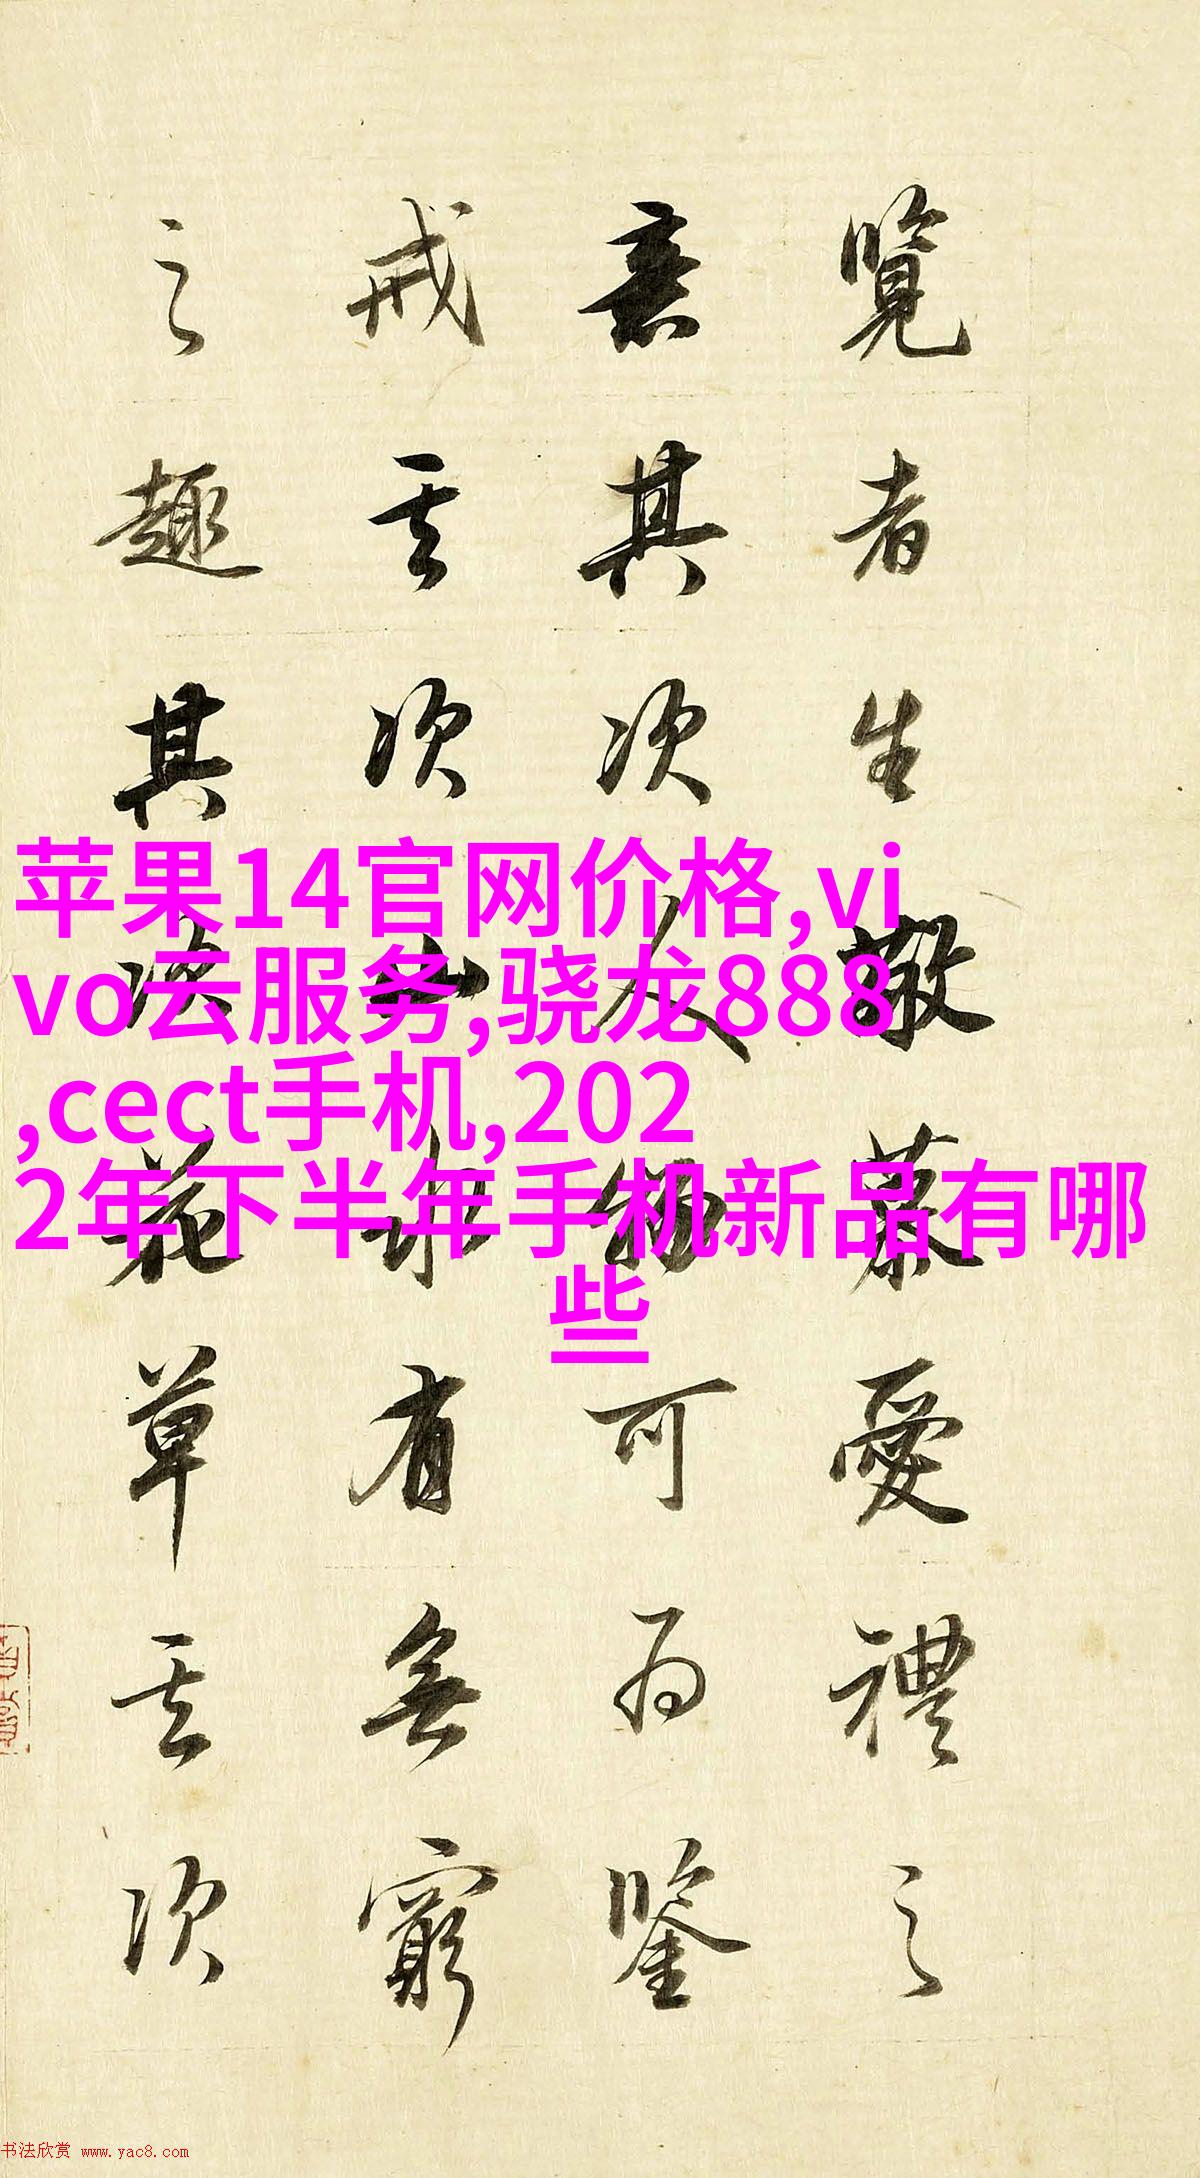 覽者生敬慕愛禮之
意其次人物可為鑒
戒其次山水有無窮
之趣其次花草其次
苹果14官网价格,vi
vo云服务,骁龙888
,cect手机,202
2年下半年手机新品有哪
些
书法欣赏 www.yac8.com